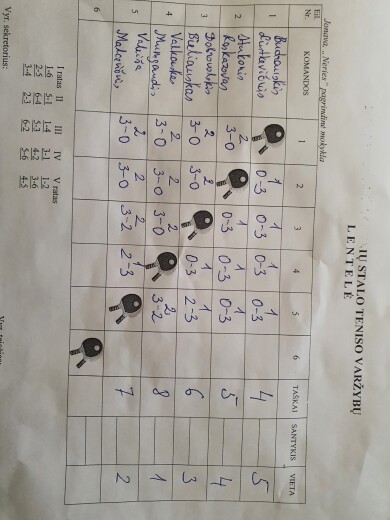 IŲ STALO TENISO VARŽYBŲ
LENTELĖ
Jonava, „Neries" pagrindinė mokykla
Eil. Nr. KOMANDOS 1 2 3 4 5 6 TAŠKAI SANTYKIS VIETA
1 1 0-3 1 0-3 1 0-3 1 0-3 4 5
2 2 3-0 1 0-3 1 0-3 1 0-3 5 4
3 Dobrovolskis 2 3-0 2 3-0 1 0-3 1 2-3 6 3
4 Valkauskas 2 3-0 2 3-0 2 3-0 2 3-2 8 1
5 2 3-0 2 3-0 2 3-2 1 2-3 7 2
6
I ratas II III IV V ratas
1-6 5-1 1-4 3-1 1-2
2-5 6-4 5-3 4-2 3-6
3-4 2-3 6-2 5-6 4-5
Vyr. sekretorius: